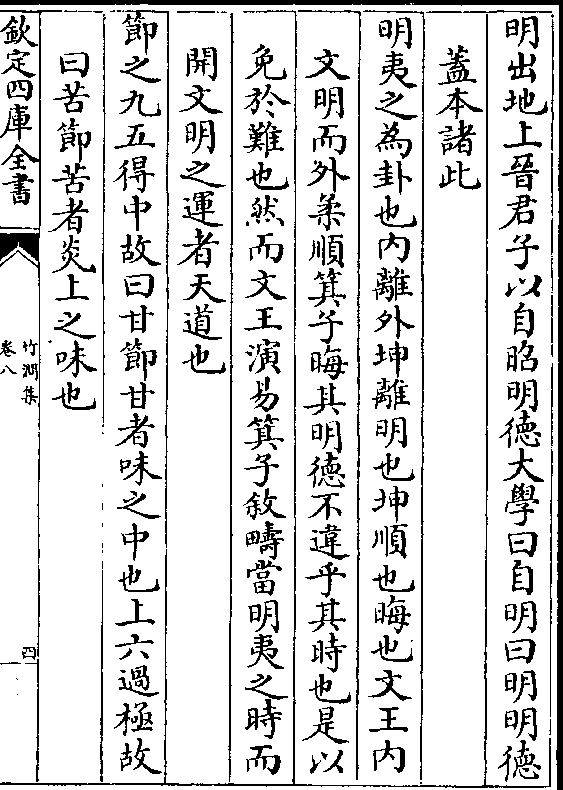 明出地上晉君子以自昭明德大學曰自明曰明明德
蓋本諸此
明夷之為卦也内離外坤離明也坤順也晦也文王内
文明而外柔順箕子晦其明德不違乎其時也是以
免於難也然而文王演易箕子敘疇當明夷之時而
開文明之運者天道也
節之九五得中故曰甘節甘者味之中也上六過極故
曰苦節苦者炎上之味也
欽定四庫全書
竹澗集
卷八
四